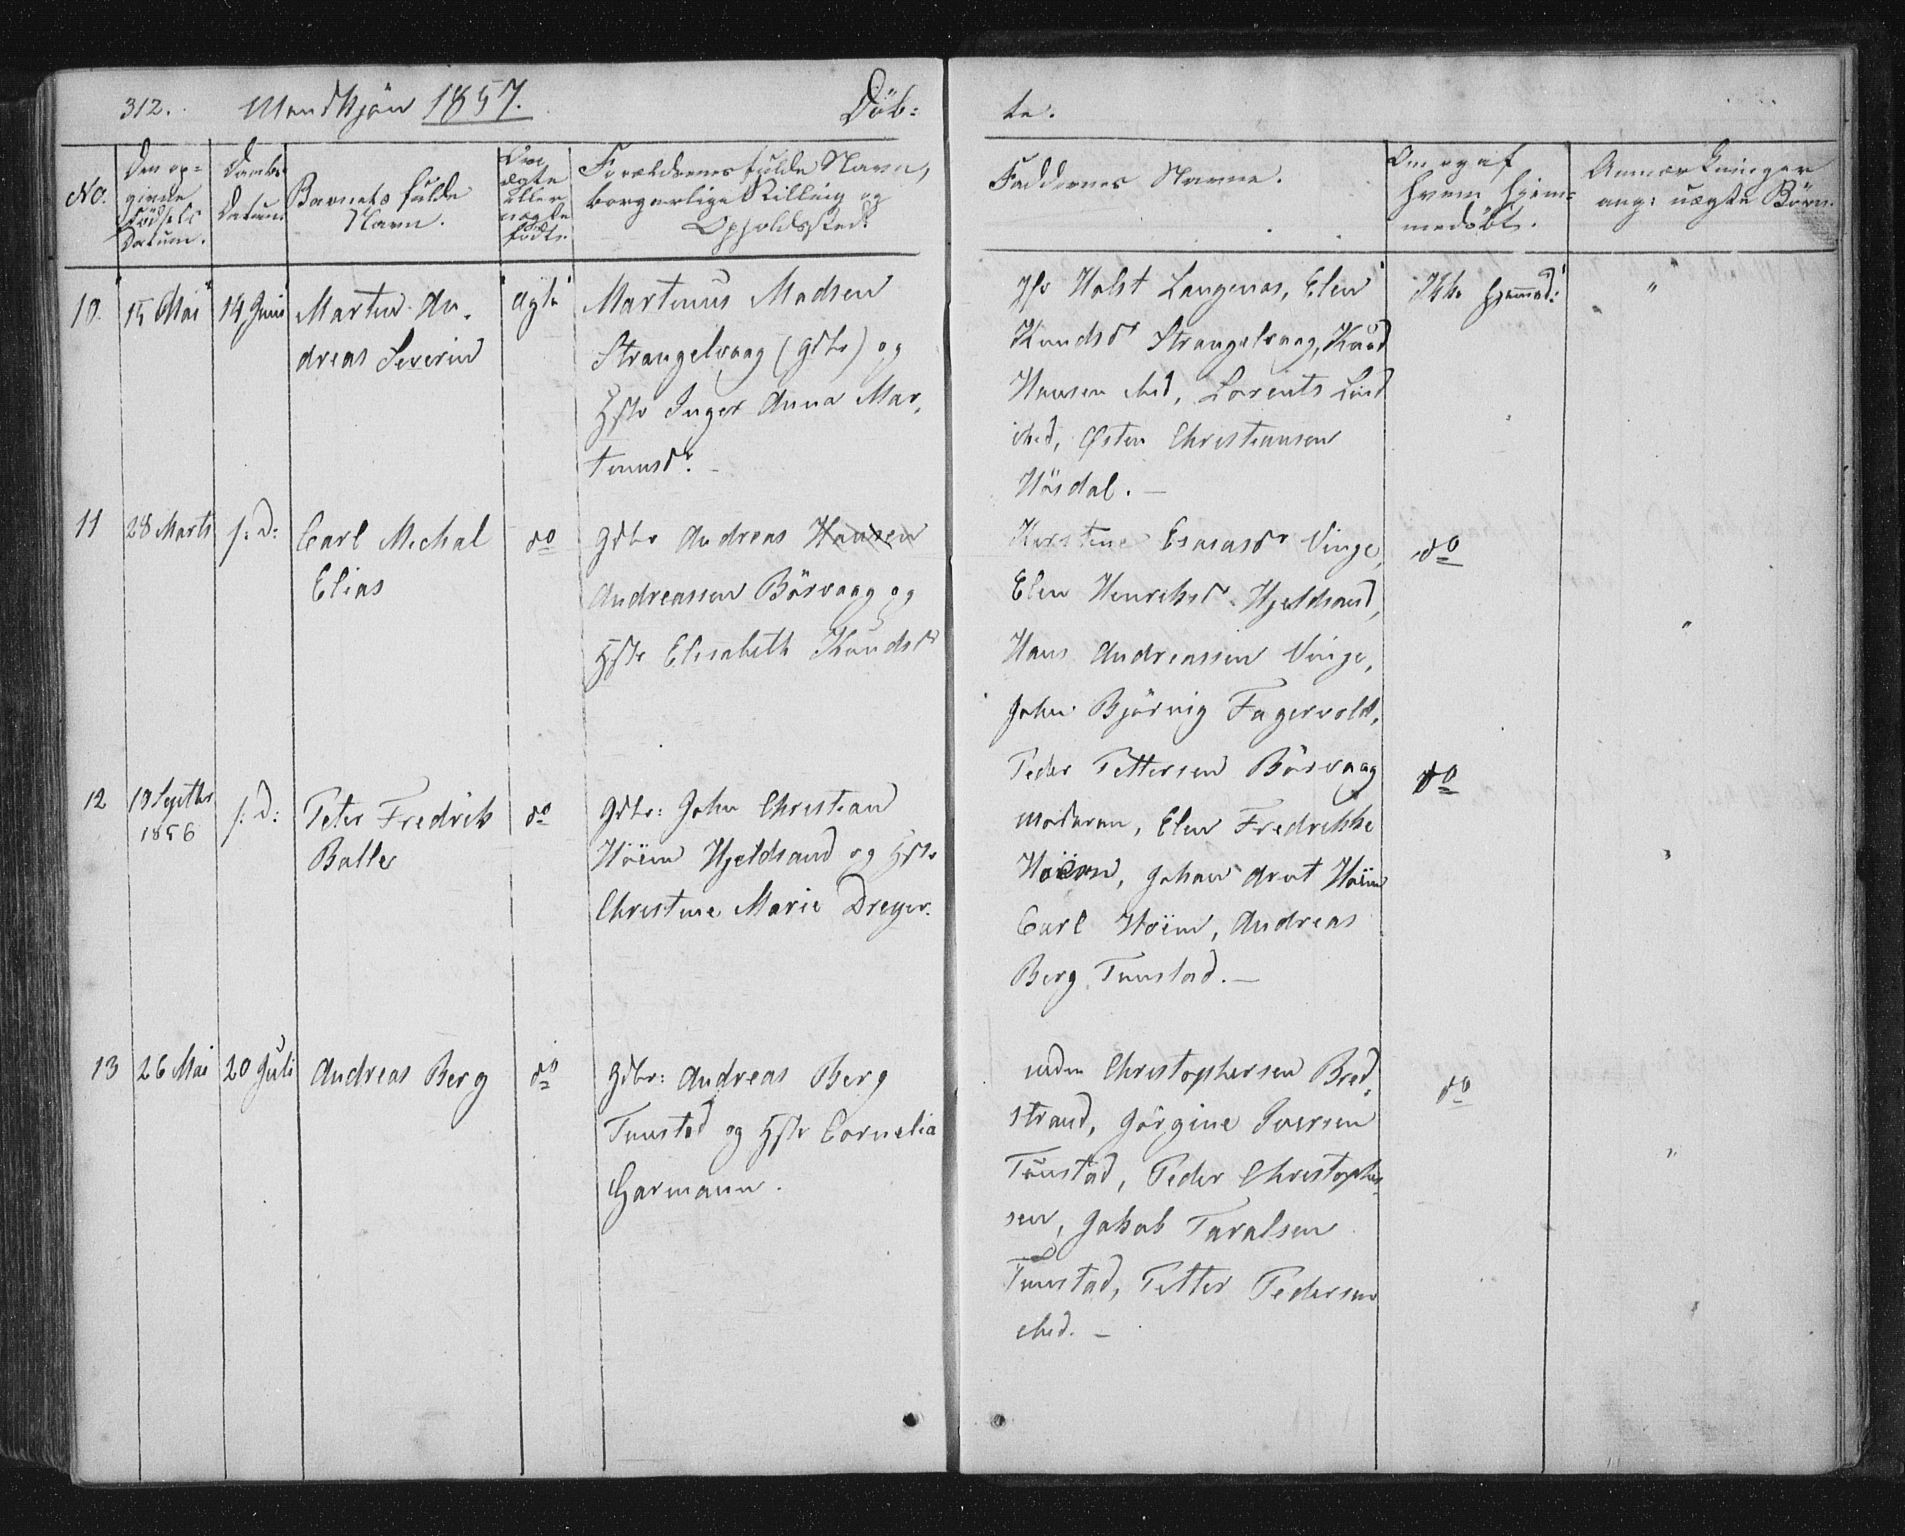 312. Mandkjön 1857. Döb-
te.
No.
Den op-
givne
Födsels
Datum.
Daabs
Datum
Barnets fulde
Navn.
Om
ægte
eller
uægte
födt.
Forældrenes fulde Navn,
borgerlige Stilling og
Opholdssted.
Faddernes Navne.
Om og af
hvem hjem-
medöbt.
Anmærkninger
ang: uægte Börn.
10. 15 Mai 14 Juni
Martin An-
dreas Severin
Ægte
Martinus Madsen
Strangelvaag (Gdbr) og
Hstr Inger Anna Mar-
tinusdr. –
Holst Langenæs, Elen
Knudsdr Strangelvaag, Knud
Hansen ibid, Lorents Lind
ibid, Østen Christiansen
Hösdal. –
Ikke hjemmed:
"
11 28 Marts s: D:
Carl Michal
Elias
do
Gdbr Andreas Hansen
Andreassen Börvaag og
Hstr Elisabeth Knudsdr
Kirstine Esaiasdr Vinge,
Elen Henriksdr Hjeldsand,
Hans Andreassen Vinge,
John Björnig Fagervold,
Peder Pettersen Börvaag
do
"
12 19 Septbr
1856
s: D:
Peter Fredrik
Balle
do
Gdbr: John Christian
Höim Hjeldsand og Hstr
Christine Marie Dreyer.
Moderen, Elen Fredrikke
Höiem, Johan Arnt Höim
Carl Höim, Andreas
Berg Tunstad. –
do
"
13 26 Mai 20 Juli
Andreas Berg
do
Gdbr: Andreas Berg
Tunstad og Hstr Cornelia
Garmann.
Christophersen Bred-
strand, Jörgine Iversen
Tunstad, Peder Christopher-
sen, Jakob Taralsen
Tunstad, Petter Pedersen
ibid. –
do
"